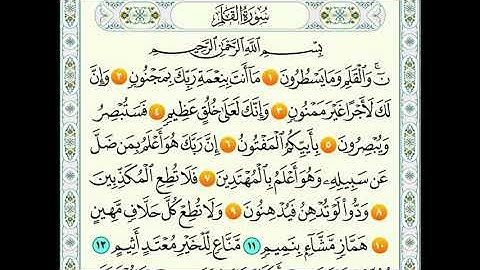 سُورَةُ الْقَلَمِ
بِسْمِ اللَّهِ الرَّحْمَٰنِ الرَّحِيمِ
نٓ ۚ وَالْقَلَمِ وَمَا يَسْطُرُونَ ١ مَا أَنتَ بِنِعْمَةِ رَبِّكَ بِمَجْنُونٍ ٢ وَإِنَّ
لَكَ لَأَجْرًا غَيْرَ مَمْنُونٍ ٣ وَإِنَّكَ لَعَلَىٰ خُلُقٍ عَظِيمٍ ٤ فَسَتُبْصِرُ
وَيُبْصِرُونَ ٥ بِأَييِّكُمُ الْمَفْتُونُ ٦ إِنَّ رَبَّكَ هُوَ أَعْلَمُ بِمَن ضَلَّ
عَن سَبِيلِهِ وَهُوَ أَعْلَمُ بِالْمُهْتَدِينَ ٧ فَلَا تُطِعِ الْمُكَذِّبِينَ
٨ وَدُّوا لَوْ تُدْهِنُ فَيُدْهِنُونَ ٩ وَلَا تُطِعْ كُلَّ حَلَّافٍ مَّهِينٍ
١٠ هَمَّازٍ مَّشَّاءٍ بِنَمِيمٍ ١١ مَّنَّاعٍ لِّلْخَيْرِ مُعْتَدٍ أَثِيمٍ ١٢